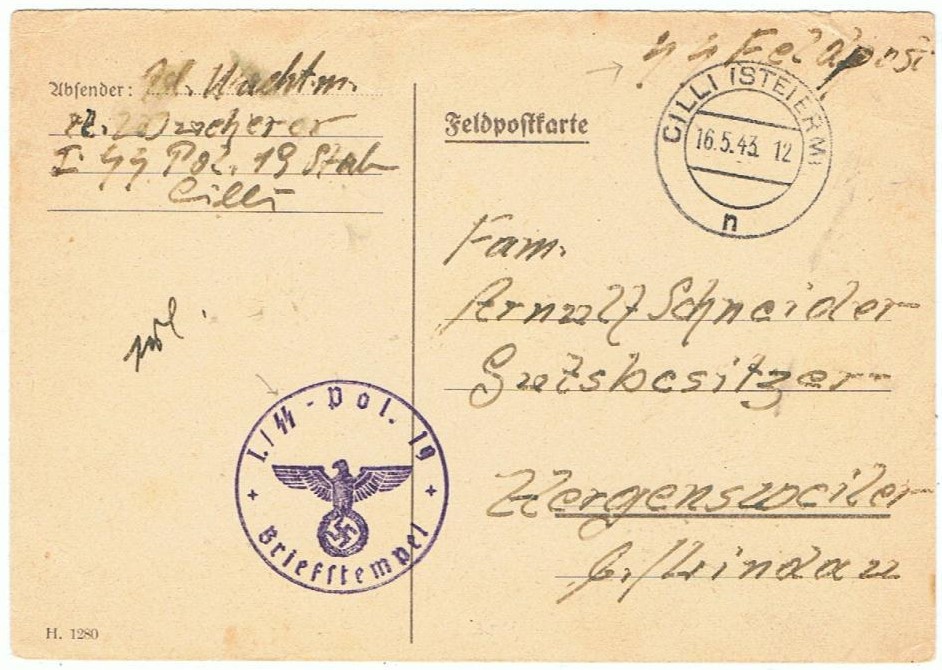 Absender: Pol. Wachtm.
I SS Pol. 19 Stab
Cilli
SS Feldpost
Feldpostkarte
CILLI (STEIERM)
16.5.43. 12
n
Fam.
Arnulf Schneider
Gutsbesitzer
Hergensweiler
b./Lindau
I./SS-Pol. 19
Briefstempel
H. 1280